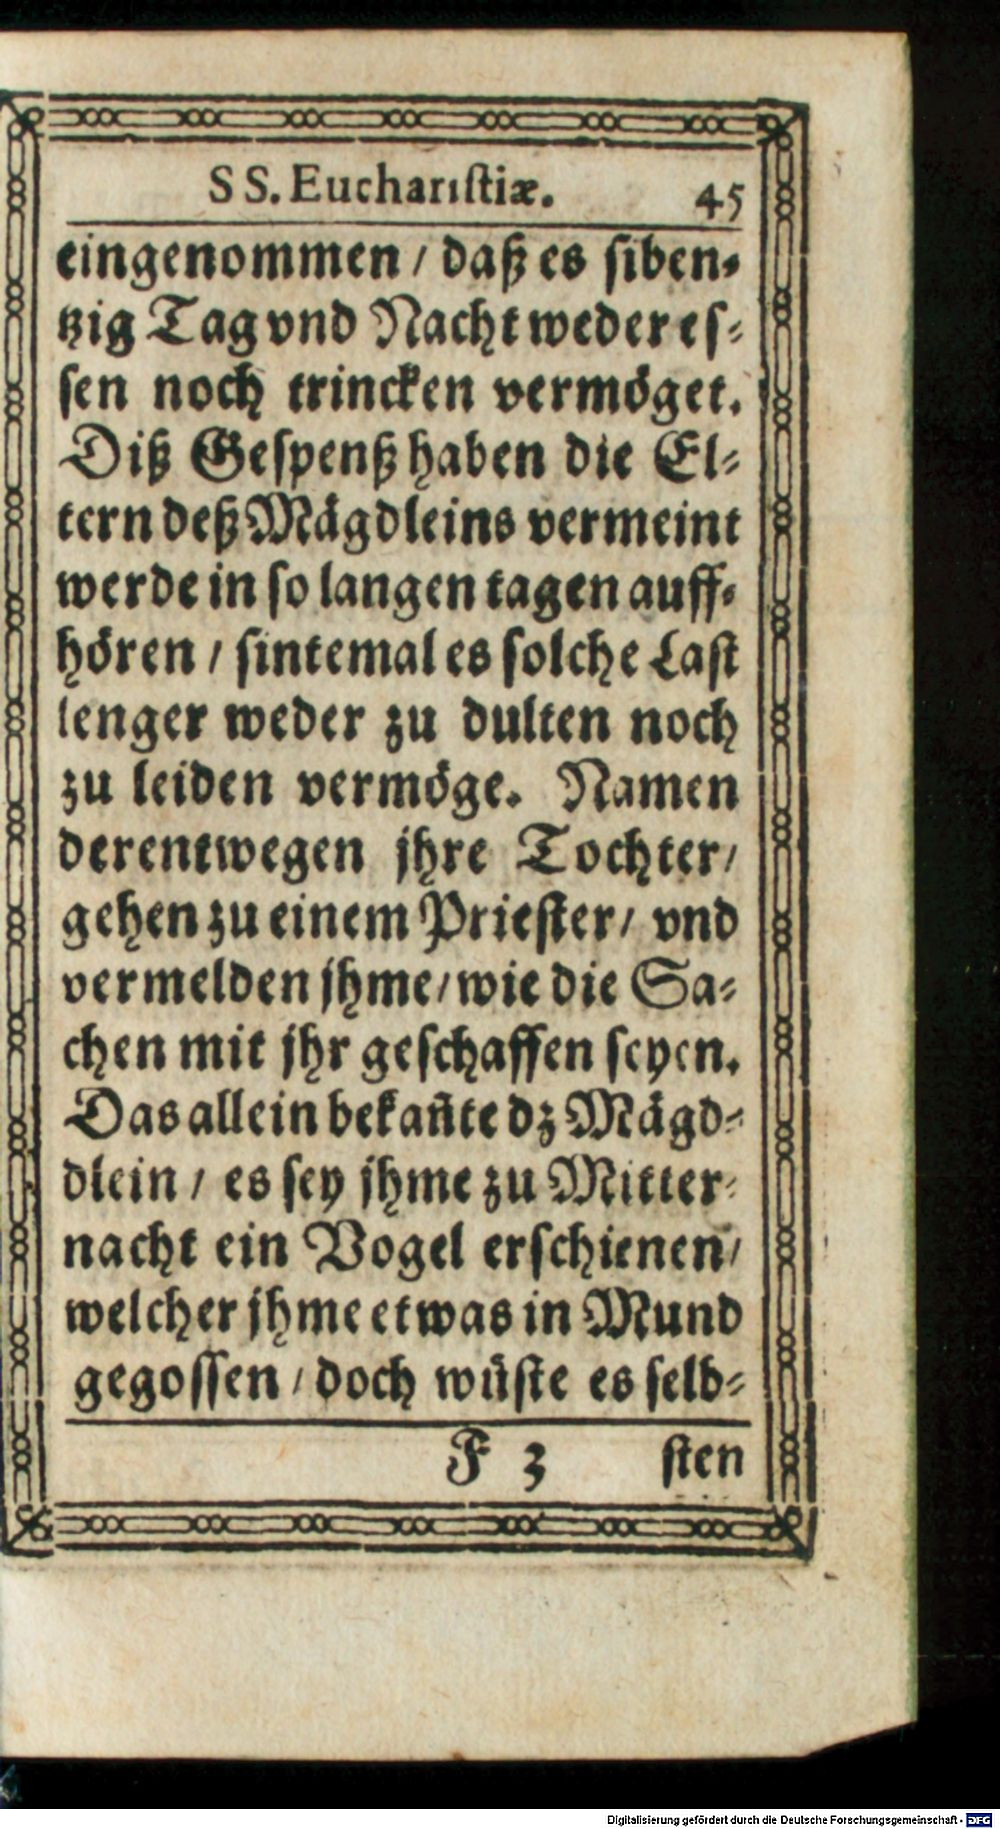 SS. Euchariſtiæ. 45
eingenommen / daß es ſiben⸗
tzig Tag vnd Nacht weder eſ⸗
ſen noch trincken vermöget.
Diß Geſpenß haben die El⸗
tern deß Mägdleins vermeint
werde in ſo langen tagen auff⸗
hören / ſintemal es ſolche Laſt
lenger weder zu dulten noch
zu leiden vermöge. Namen
derentwegen jhre Tochter /
gehen zu einem Prieſter / vnd
vermelden jhme / wie die Sa⸗
chen mit jhr geſchaffen ſeyen.
Das allein bekañte dz Mägd⸗
dlein / es ſey jhme zu Mitter⸗
nacht ein Vogel erſchienen /
welcher jhme etwas in Mund
gegoſſen / doch wüſte es ſelb⸗
F 3 ſten
Digitalisierung gefördert durch die Deutsche Forschungsgemeinschaft - DFG